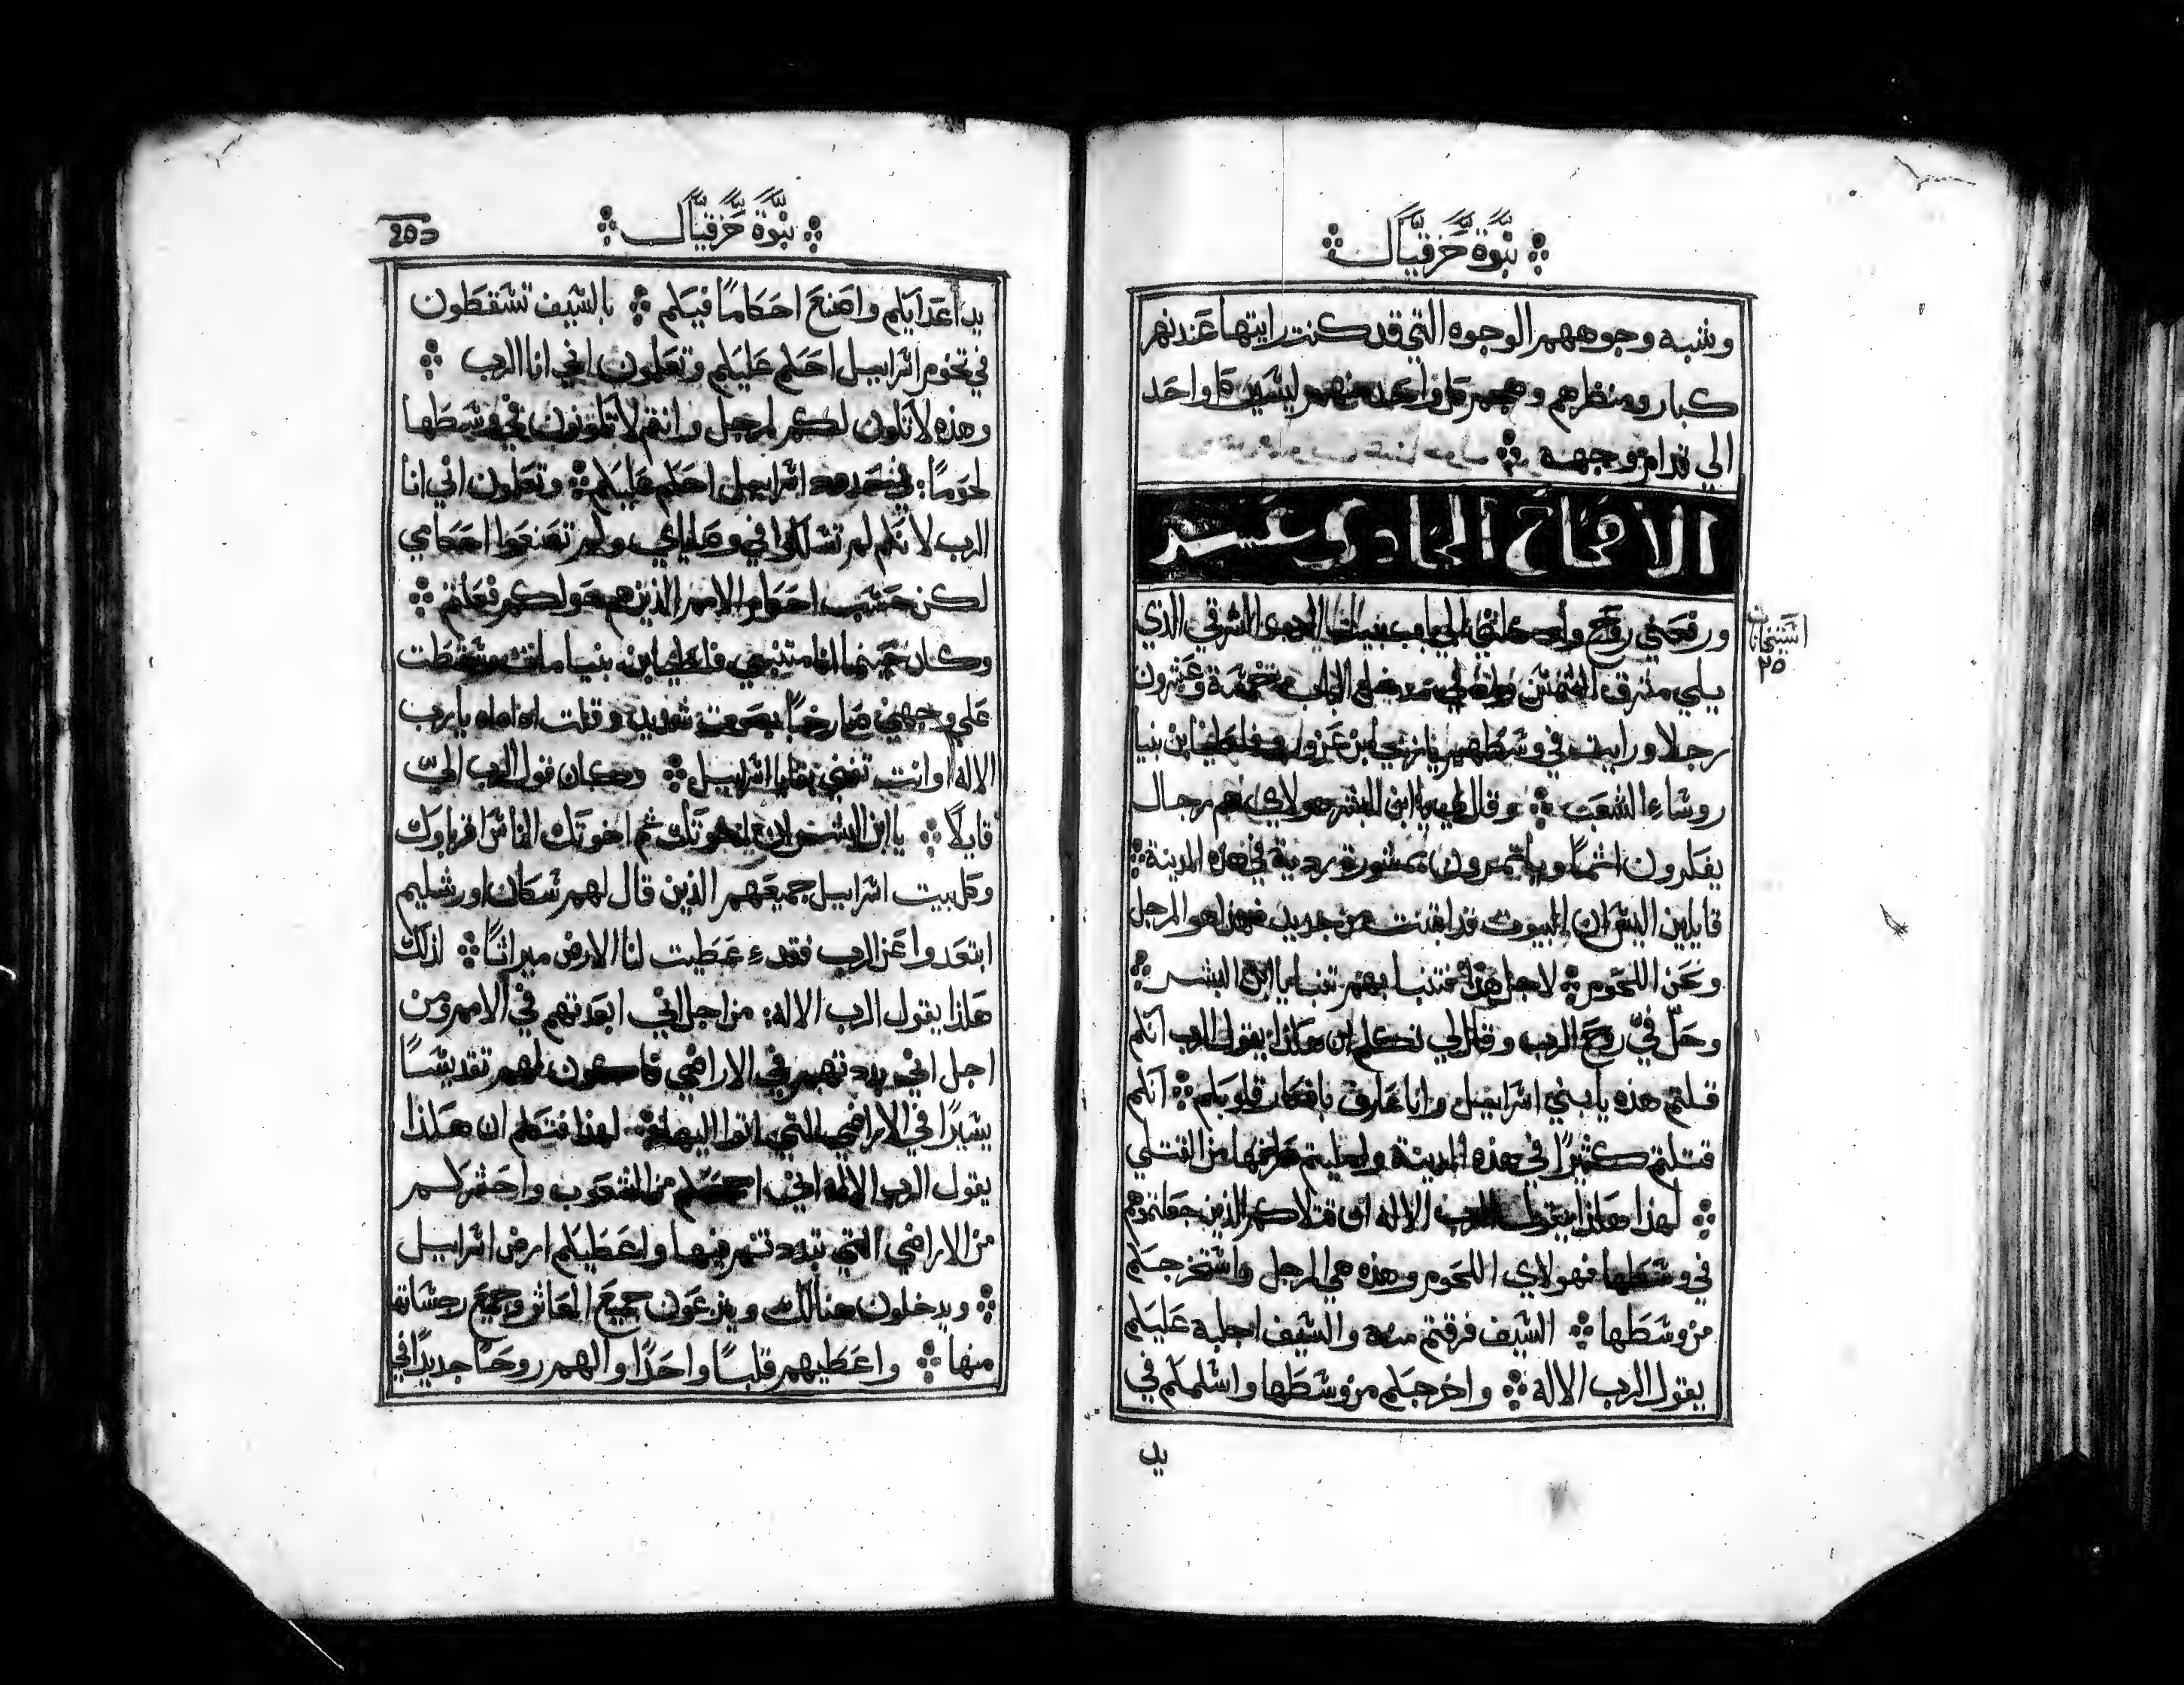 نبوة حزقيال
وشبه وجوههم الوجوه التي قد كنت رايتها عند نهر
كبار ومنظرهم وكل واحد منهم ليسير كل واحد
الي قدام وجهه
الاصحاح الحادي عشر
ورفعني روح وادخلني الي باب بيت الرب الشرقي الذي
استيخانات ٢٥
يلي مشرق الشمس واذا في مدخل الباب خمسة وعشرون
رجلا ورايت في وسطهم يازنيا ابن عزور وفلطيا ابن بنيا
روساء الشعب وقال لي يا ابن البشر هولاي هم رجال
يفكرون اثما وياتمرون بمشورة ردية في هذه المدينة
قايلين اليس ان البيوت قد ابتنت من جديد فهذا هو المرجل
ونحن اللحوم لاجل هذا فتنبا بهم تنبا يا ابن البشر
وحل في روح الرب وقال لي تكلم ان هكذا يقول الرب انكم
قلتم هذه يا بني اسراييل وانا عارف بافكار قلوبكم انكم
قتلتم كثيرا في هذه المدينة واملیتم طرقها من القتلي
لهذا هكذا يقول الرب الاله ان قتلاكم الذين جعلتموهم
في وسطها فهولاي اللحوم وهذه هي المرجل واستخرجكم
من وسطها السيف فرقتم منه والسيف اجلبه عليكم
يقول الرب الاله واخرجكم من وسطها واسلمكم في
يد
نبوة حزقيال
يد اعدايكم واصنع احكاما فيكم بالسيف تسقطون
في تخوم اسراييل احكم عليكم وتعلمون اني انا الرب
وهذه لا تكون لكم المرجل وانتم لا تكونون في وسطها
لحوما في حدود اسراييل احكم عليكم وتعلمون اني انا
الرب لانكم لم تسلكوا في وصاياي ولم تصنعوا احكامي
لكن حسب احكام الامم الذين هم حولكم فعلتم
وكان حينما انا متنبي فلطيا ابن بنيا مات وسقطت
علي وجهي صارخا بصوت شديد وقلت اه اه اه يا رب
الاله اوانت تفني بقايا اسراييل وكان قول الرب الي
قايلا يا ابن البشر ان اخوتك ثم اخوتك الناس اقرباوك
وكل بيت اسراييل جميعهم الذين قال لهم سكان اورشليم
ابتعدوا عن الرب فقد عطيت لنا الارض ميراثا لذلك
هكذا يقول الرب الاله من اجل اني ابعدتهم في الامم ومن
اجل اني بددتهم في الاراضي فاكون لهم تقديسا
يسيرا في الاراضي التي ماتوا اليها لهذا فتكلم ان هكذا
يقول الرب الاله اني اجمعكم من الشعوب واحشركم
من الاراضي التي تبددتم فيها واعطيكم ارض اسراييل
ويدخلون هنالك وينزعون جميع المعاثر وجميع رجساتها
منها واعطيهم قلبا واحدا والهم روحا جديدا في